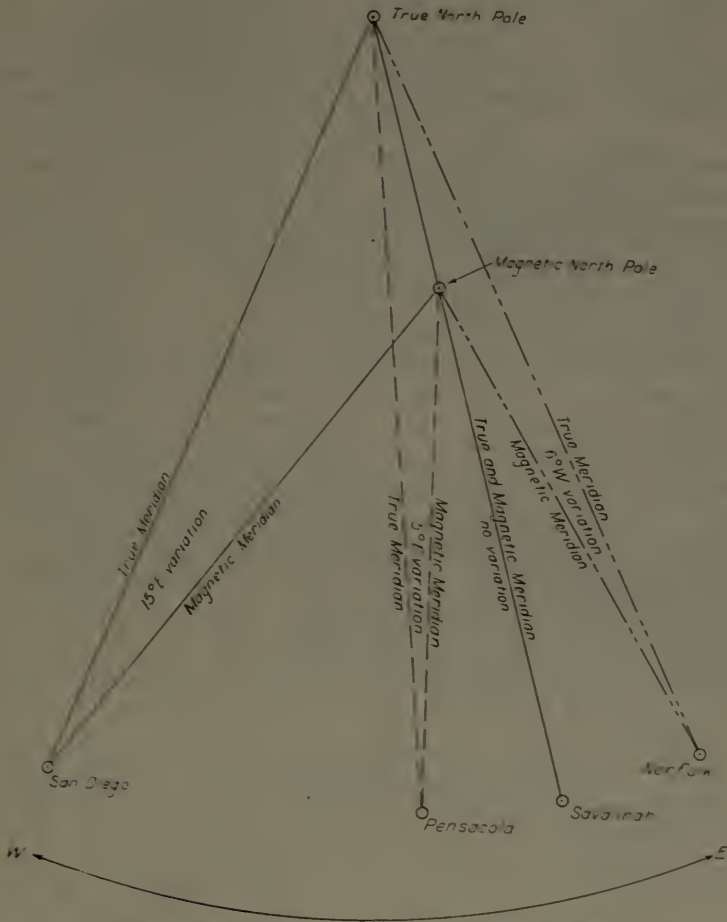 True North Pole
Magnetic North Pole
True Meridian
15°E variation
Magnetic Meridian
True Meridian
5°E variation
Magnetic Meridian
True and Magnetic Meridian
no variation
Magnetic Meridian
6°W variation
True Meridian
San Diego
Pensacola
Savannah
Norfolk
W
E